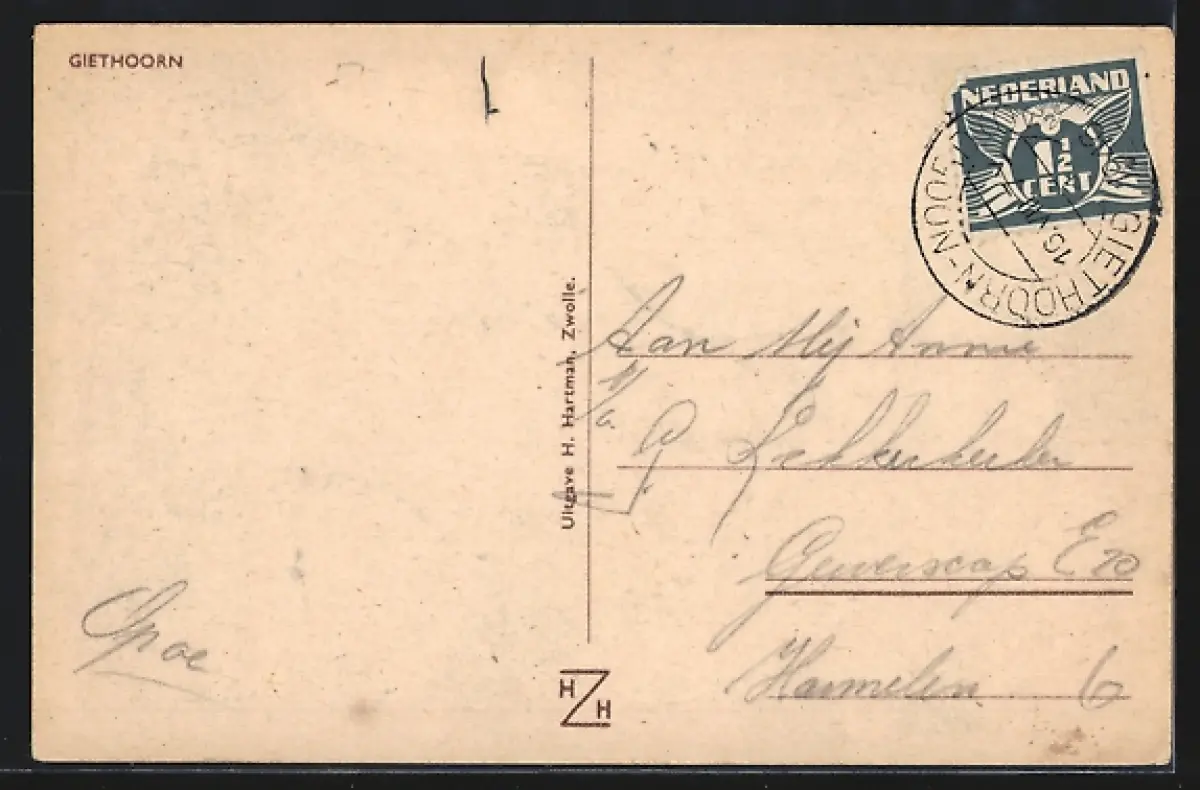 GIETHOORN
NEDERLAND
1½
CENT
GIETHOORN-NOORD
Uitgave H. Hartman, Zwolle.
Aan Mej Annie
p/a
G Lekkerkerker
Gewerscop E 20
Harmelen 6
Opoe
H Z H